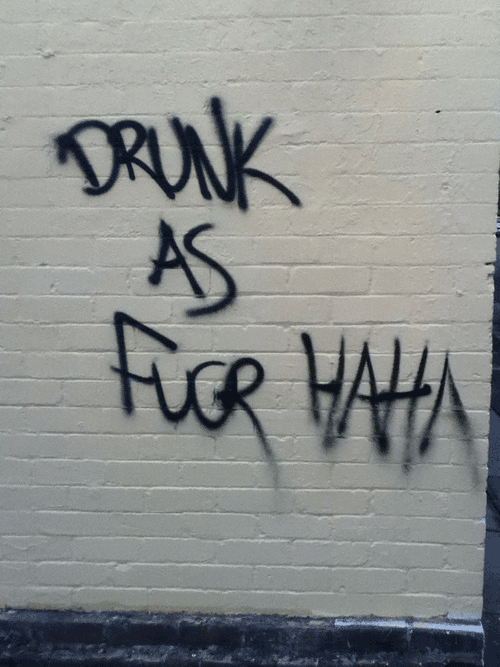 DRUNK
AS
FUCR HAHA